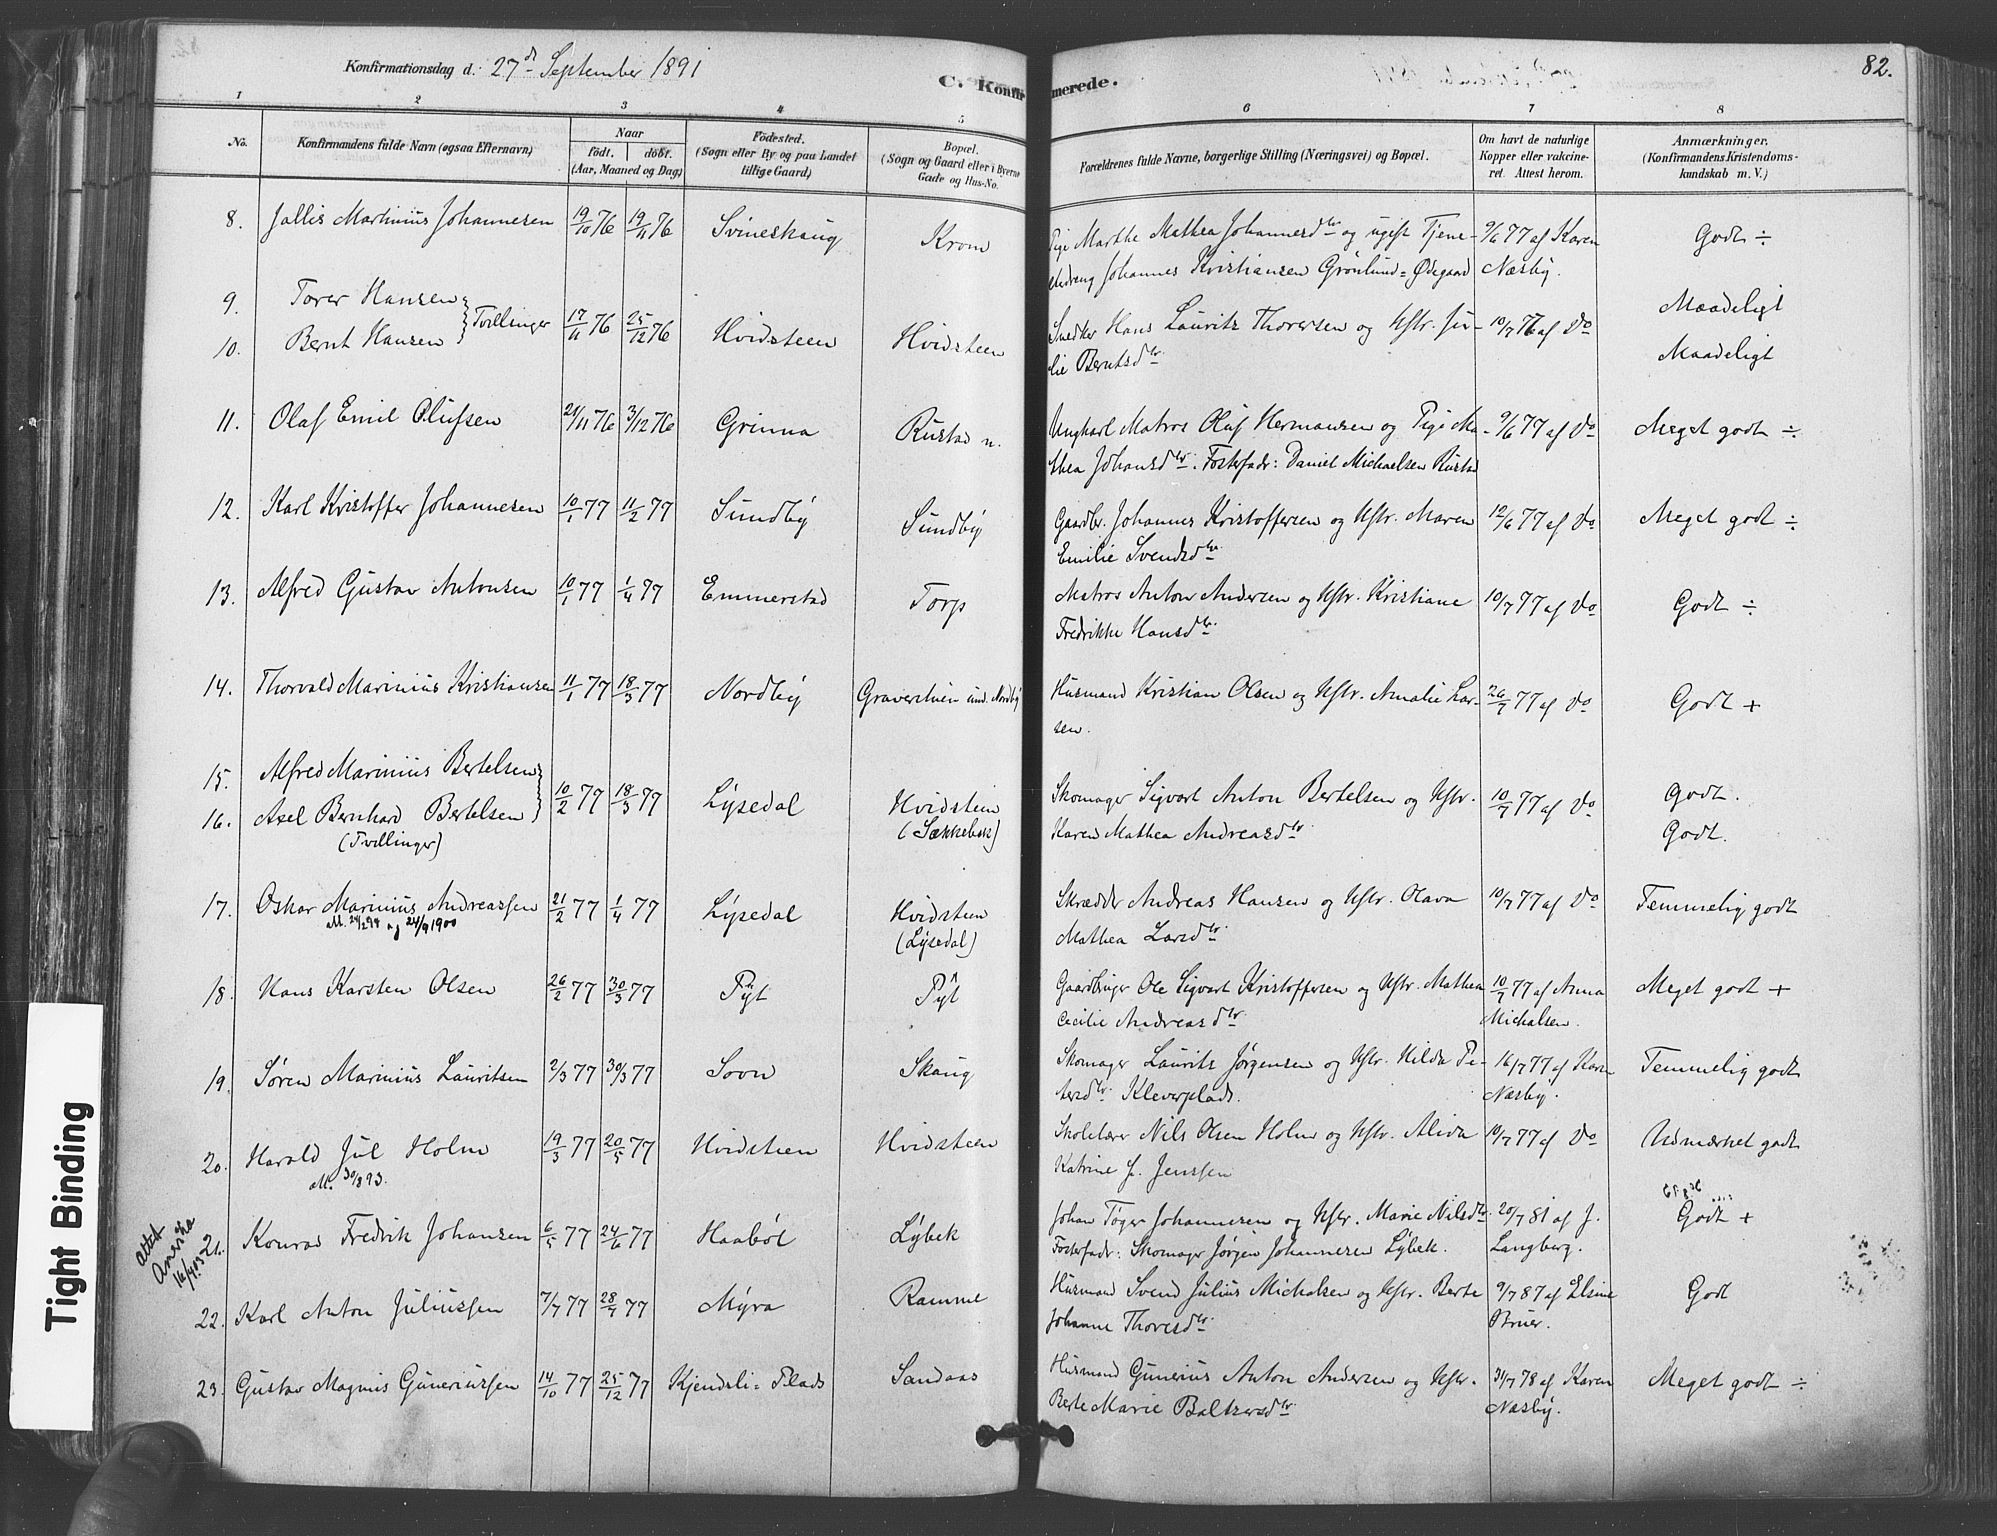 82.
Konfirmationsdag d. 27de September 1891
C. Konfirmerede.
1 2 3 4 5 6 7 8
No. Konfirmandens fulde Navn (ogsaa Efternavn) Naar født. døbt. (Aar, Maaned og Dag) Fødested. (Sogn eller By og paa Landet tillige Gaard) Bopæl. (Sogn og Gaard eller i Byerne Gade og Hus-No. Forældrenes fulde Navne, borgerlige Stilling (Næringsvei) og Bopæl. Om havt de naturlige Kopper eller vakcineret. Attest herom. Anmærkninger. (Konfirmandens Kristendomskundskab m. V.)
8. Jallis Martinius Johannesen 19/10 76 19/11 76 Svineskaug Krom Pige Marthe Mathea Johannesdtr og ugift Tjene- 9/6 77 af Karen Godt ÷
stedreng Johannes Kristiansen Grønlund = Ødegaard Næsby.
9. Torer Hansen } Tvillinger 17/11 76 25/12 76 Hvidsteen Hvidsteen Smedker Hans Laurits Thoresen og Hstr. Ju- 10/7 77 af Do Maadeligt
10. Bernt Hansen lie Berntsdtr. Maadeligt
11. Olaf Emil Olufsen 21/11 76 3/12 76 Grinna Rustad n. Ungkarl Matros Oluf Hermansen og Pige Ma- 9/6 77 af Do Meget godt ÷
thea Johansdtr. Fosterfadr: Daniel Michaelsen Rustad
12. Karl Kristoffer Johannesen 10/1 77 11/2 77 Sundby Sundby Gaardbr. Johannes Kristoffersen og Hstr. Maren 12/6 77 af Do Meget godt ÷
Emilie Svendsdtr
13. Alfred Gustav Antonsen 10/1 77 1/4 77 Emmerstad Torp Matros Anton Andersen og Hstr. Kristiane 10/7 77 af Do Godt ÷
Fredrikke Hansdtr.
14. Thorvald Marinius Kristiansen 11/1 77 18/3 77 Nordby Graverstuen und. Nordby Husmand Kristian Olsen og Hstr. Amalie Lar- 26/7 77 af Do Godt +
sen.
15. Alfred Marinius Bertelsen } 10/2 77 18/3 77 Lysedal Hvidsteen Skomager Sigvart Anton Bertelsen og Hstr. 10/7 77 af Do Godt.
16. Axel Bernhard Bertelsen (Sækkebæk) Karen Mathea Andreasdtr. Godt.
(Tvillinger)
17. Oskar Marinius Andreassen 21/2 77 1/4 77 Lysedal Hvidsteen Skrædder Andreas Hansen og Hstr. Olava 10/7 77 af Do Temmelig godt
og 24/9 1900 (Lysedal) Mathea Larsdtr.
18. Hans Karsten Olsen 26/2 77 30/3 77 Pyt Pyt Gaardbruger Ole Sigvart Kristoffersen og Hstr. Mathea 10/7 77 af Anna Meget godt +
Cecilie Andreasdtr Michalsen.
19. Søren Marinius Lauritsen 2/3 77 30/3 77 Sovn Skaug Skomager Laurits Jørgensen og Hstr. Hilda Pe- 16/7 77 af Karen Temmelig godt
tersdtr. Kleverplads. Næsby.
20. Harald Jul Holm 19/3 77 20/5 77 Hvidsteen Hvidsteen Skolelærer Nils Olsen Holm og Hstr. Alida 10/7 77 af Do Udmærket godt
att. 30/8 93. Katrine f. Jenssen
attest Amerika 16/4 03
21. Konrad Fredrik Johansen 6/5 77 24/6 77 Haabøl Lybek Johan Tøger Johannesen og Hstr. Marie Nilsdtr. 20/7 81 af J. Godt +
Fosterfadr: Skomager Jørgen Johannesen Lybek. Langberg.
22. Karl Anton Juliussen 7/7 77 28/7 77 Myra Ramme Husmand Svend Julius Michalsen og Hstr. Berte 9/7 87 af Elsine Godt
Johanne Thoresdtr. Bruer.
23. Gustav Magnus Guneriussen 14/10 77 25/12 77 Kjendsli = Plads Sandaas Husmand Gunerius Anton Andersen og Hstr. 31/7 78 af Karen Meget godt ÷
Berte Marie Baltzersdtr. Næsby.
Tight Binding